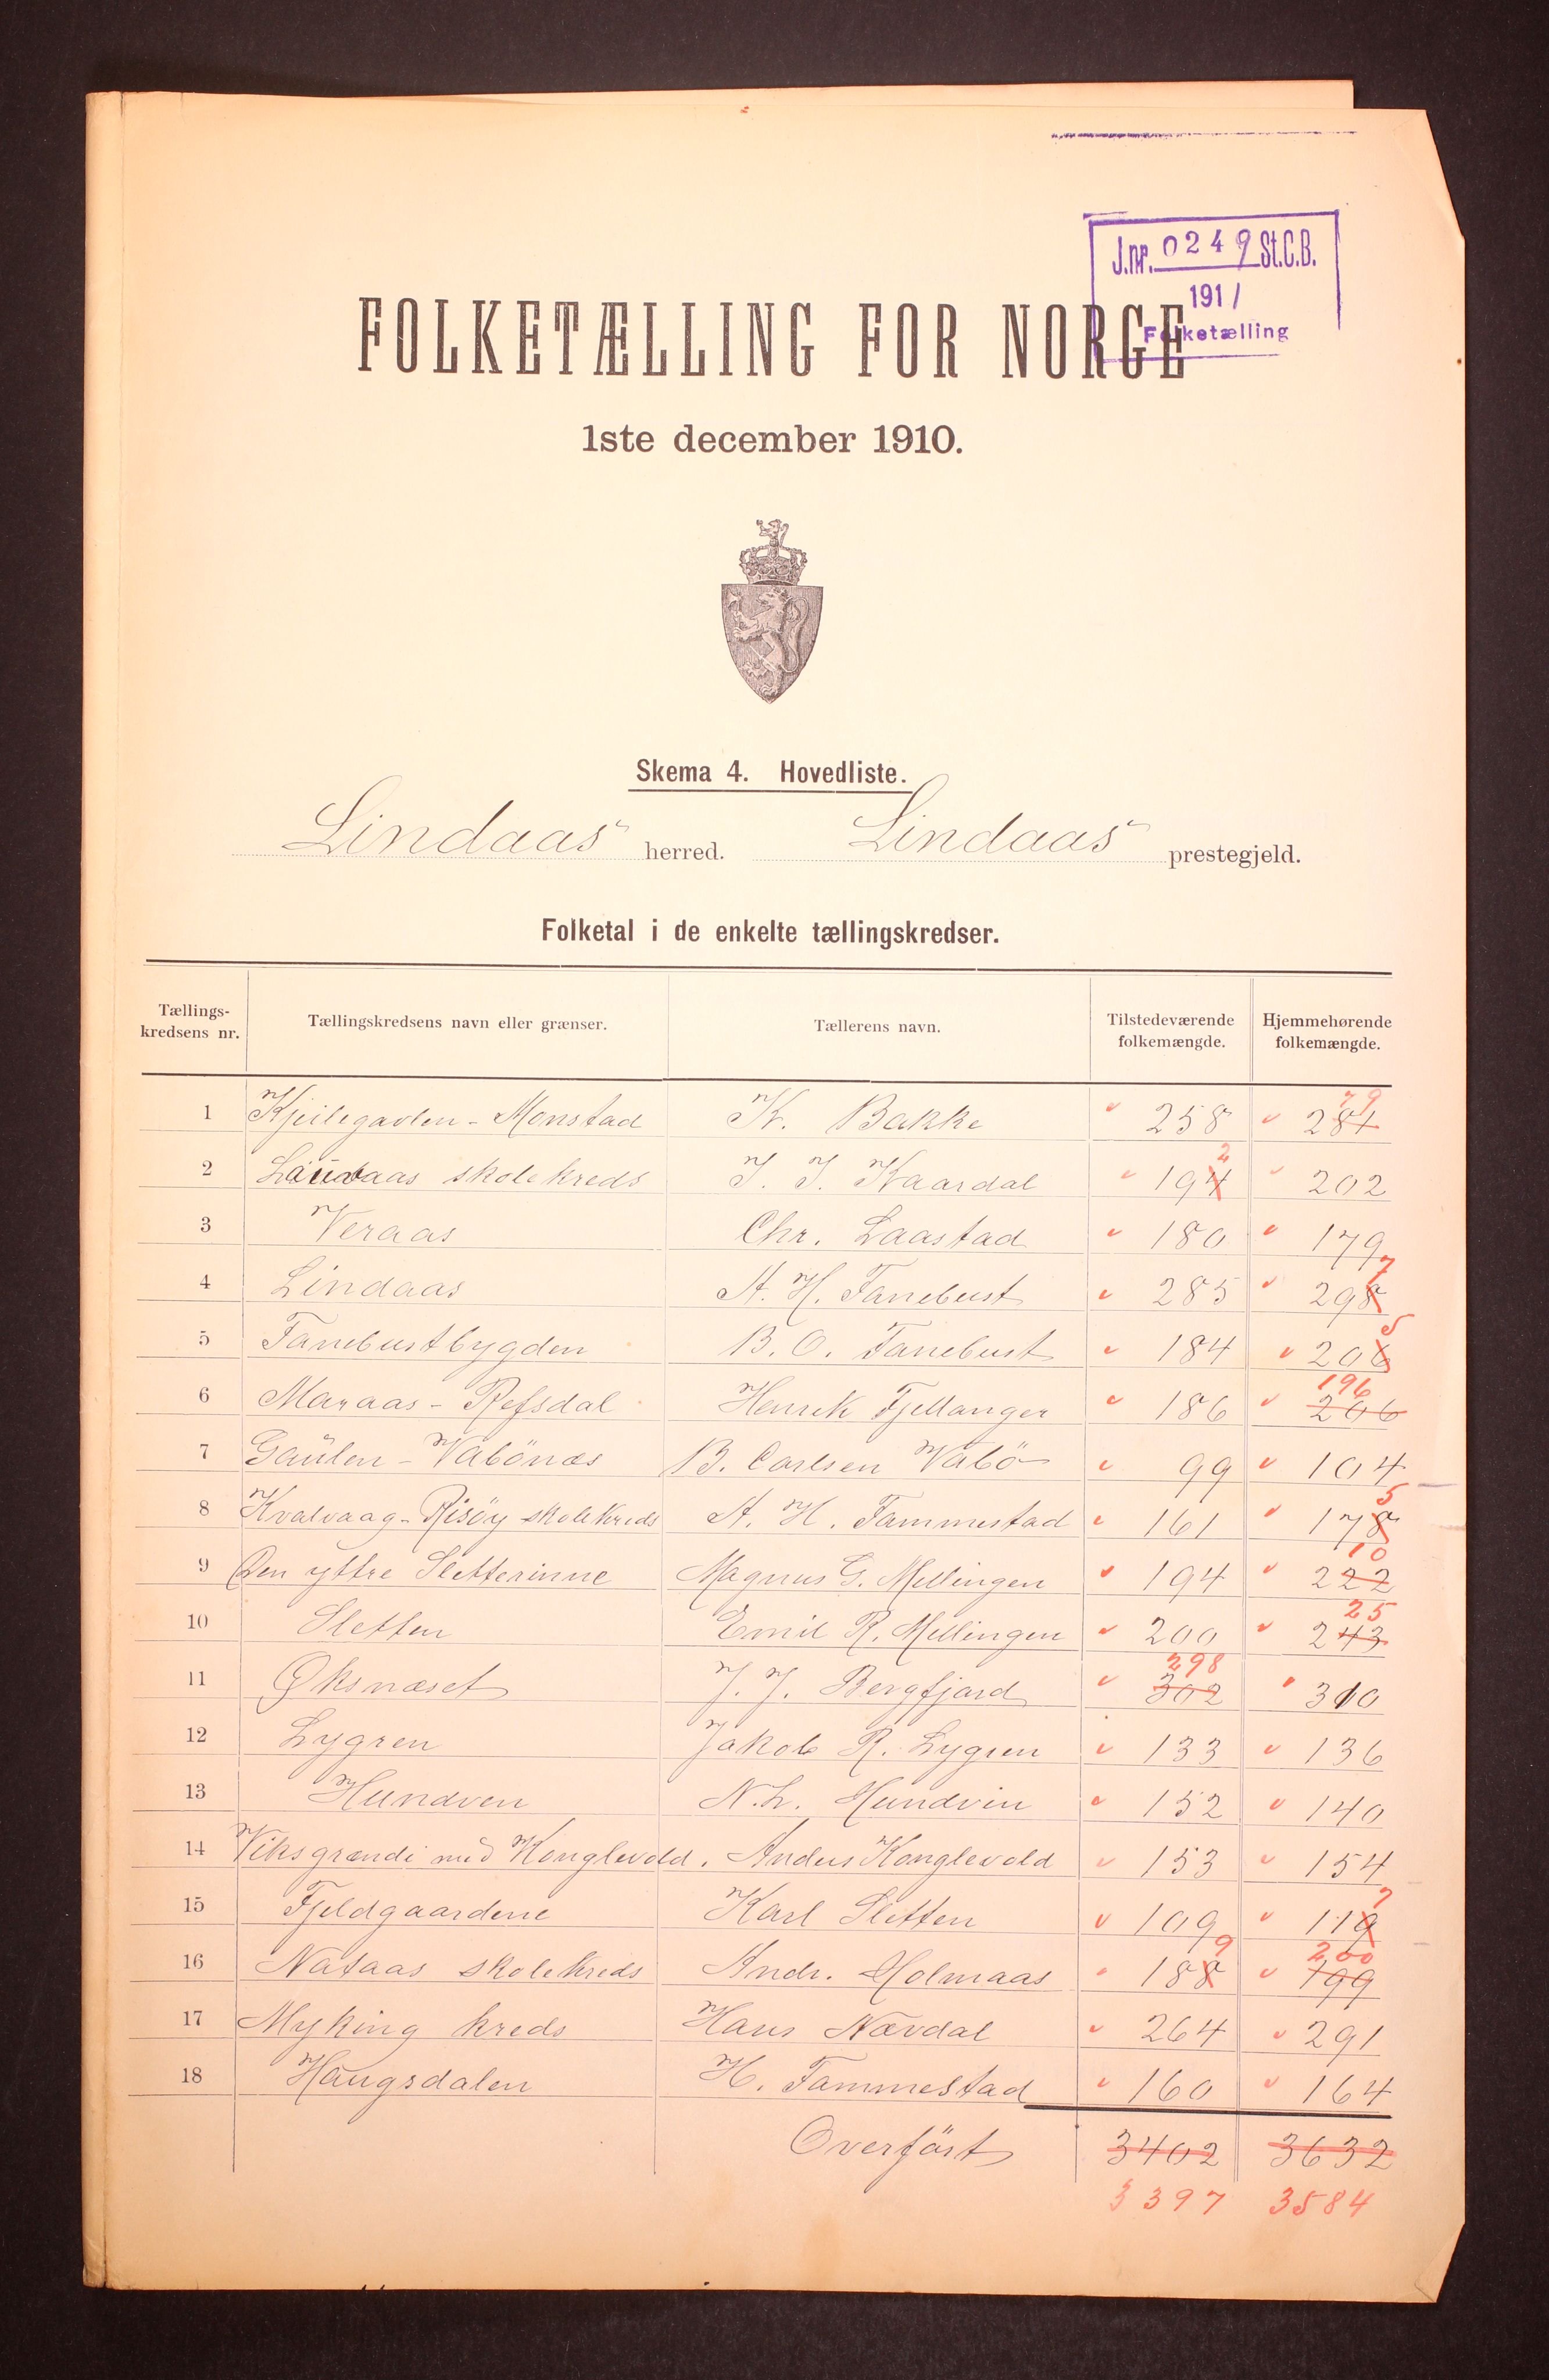 J.nr. 0249 St.C.B.
1911
Folketælling
FOLKETÆLLING FOR NORGE
1ste december 1910.
Skema 4. Hovedliste.
Lindaas herred. Lindaas prestegjeld.
Folketal i de enkelte tællingskredser.
Tællings-kredsens nr. Tællingskredsens navn eller grænser. Tællerens navn. Tilstedeværende folkemængde. Hjemmehørende folkemængde.
79
1 Kjeilegavlen - Monstad K. Bakke 258 284
2
2 Lauvaas skolekreds J. J. Kaardal 194 202
3 Veraas Chr. Laastad 180 179
7
4 Lindaas A. H. Fanebust 285 298
5
5 Fanebustbygden B. O. Fanebust 184 206
196
6 Maraas - Refsdal Henrik Fjellanger 186 206
7 Gaulen - Vabönæs B. Carlsen Vabö 99 104
5
8 Kvalvaag - Risöy skolekreds A. H. Fammestad 161 178
10
9 Den yttre Sletterinne Magnus G. Mellingen 194 222
25
10 Sletten Emil R. Mellingen 200 243
298
11 Øksnæset J. J. Bergfjord 302 310
12 Lygren Jakob R. Lygren 133 136
13 Hundven N. L. Hundvin 152 140
14 Viksgrændi med Konglevold. Anders Konglevold 153 154
7
15 Fjeldgaardene Karl Sletten 109 119
9 200
16 Nataas skolekreds Andr. Holmaas 188 199
17 Myking kreds Hans Nævdal 264 291
18 Haugsdalen H. Fammestad 160 164
Overfört 3402 3632
3397 3584